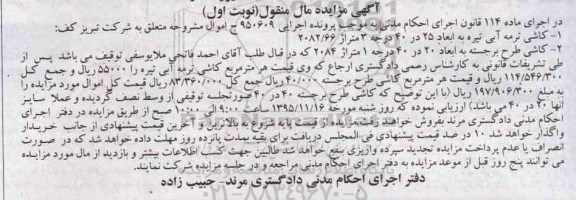 آگهی مزایده مال منقول(نوبت اول)
در اجرای ماده ۱۱۴ قانون اجرای احکام مدنی به موجب پرونده اجرایی ۹۵۰۶۰۹ ج اموال مشروحه متعلق به شرکت تبریز کف:
۱- کاشی ترمه آبی تیره به ابعاد ۲۵ در ۴۰ درجه ۳ متراژ ۲۰۸۲/۶۶
۲- کاشی طرح برجسته به ابعاد ۲۰ در ۴۰ درجه ۱ متراژ ۲۰۸۴ که در قبال طلب آقای احمد فاتحی ملایوسفی توقیف می باشد پس از
طی تشریفات قانونی به کارشناس رسمی دادگستری ارجاع که وی قیمت هر مترمربع کاشی ترمه آبی تیره را ۵۵۰۰۰ ریال و جمع کل
۱۱۴/۵۴۶/۳۰۰ ریال و قیمت هر مترمربع کاشی طرح برجسته ۴۰/۰۰۰ ریال جمع کل ۸۳/۳۶۰/۰۰۰ ریال قیمت کل اموال مورد مزایده را
به مبلغ ۱۹۷/۹۰۶/۳۰۰ ریال (با این توضیح که کاشی طرح برجسته ۴۰ در ۴۰ در صورتجلسه توقیفی از وسط نصف گردیده و عملا سایز
آنها ۲۰ در ۴۰ می باشد) ارزیابی نموده که روز شنبه مورخه ۱۳۹۵/۱۱/۱۶ ساعت ۹:۰۰ الی ۱۰:۰۰ صبح از طریق مزایده در دفتر اجرای
احکام مدنی دادگستری مرند بفروش خواهند رفت مزایده از قیمت پایه شروع به بالاترین و آخرین قیمت پیشنهادی از جانب خریدار
واگذار خواهد شد ۱۰ در صد قیمت پیشنهادی فی المجلس دریافت برای بقیه بمدت پانزده روز مهلت داده خواهد شد که در صورت
انصراف یا عدم پرداخت مزایده تجدید سپرده واریزی بنفع خواهد شد طالبین جهت کسب اطلاعات بیشتر و بازدید از مال مورد مزایده
می توانند پنج روز قبل از موعد مزایده به دفتر اجرای احکام مدنی مراجعه و در جلسه مزایده شرکت نمایند.
دفتر اجرای احکام مدنی دادگستری مرند- حبیب زاده
۰۲۱-۸۸۳۴۹۶۷۰-۵